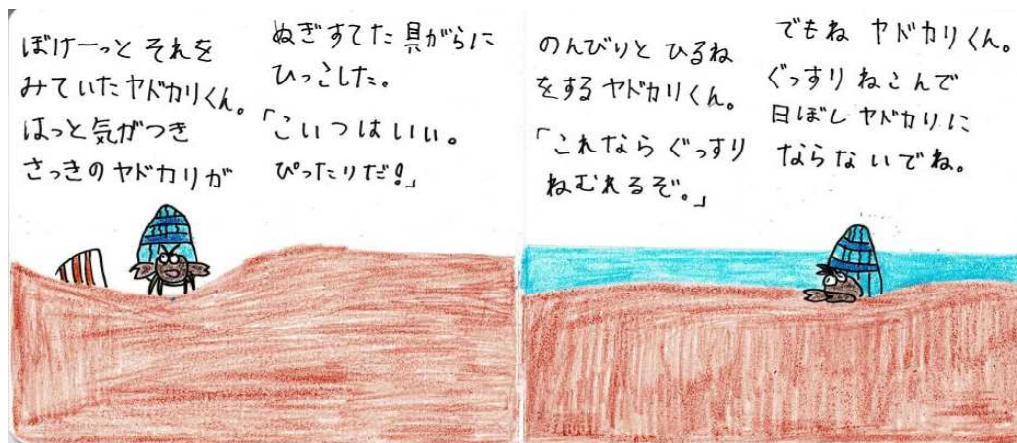 ぼけーっと それを
みていたヤドカリくん。
はっと気がつき
さっきのヤドカリが
ぬぎすてた 貝がらに
ひっこした。
「こいつはいい。
ぴったりだ!」
のんびりと ひるね
をするヤドカリくん。
「これなら ぐっすり
ねむれるぞ。」
でもね ヤドカリくん。
ぐっすり ねこんで
日ぼし ヤドカリに
ならないでね。